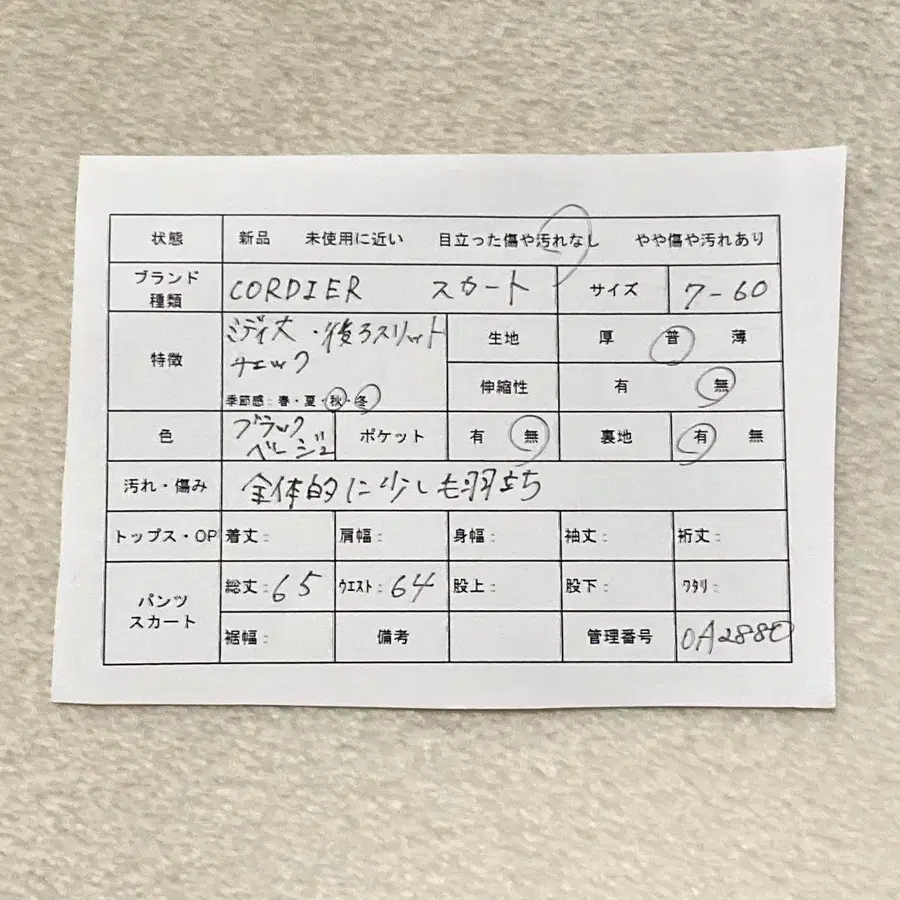 状態 新品 未使用に近い 目立った傷や汚れなし やや傷や汚れあり
ブランド 種類 CORDIER スカート サイズ 7-60
特徴 ミディ丈・後ろスリット
チェック
季節感:春・夏・秋・冬
生地 厚 普 薄
伸縮性 有 無
色 ブラック
ベージュ
ポケット 有 無 裏地 有 無
汚れ・傷み 全体的に少し毛羽立ち
トップス・OP 着丈: 肩幅: 身幅: 袖丈: 裄丈:
パンツ
スカート
総丈:65 ウエスト:64 股上: 股下: ワタリ:
裾幅: 備考 管理番号 OA2880